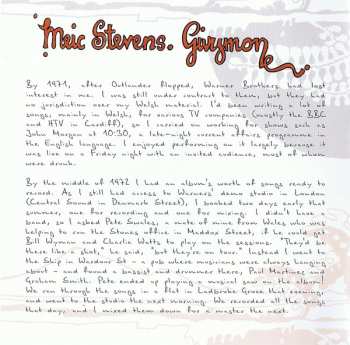 Meic Stevens. Gwymon
By 1971, after Outlander flopped, Warner Brothers had lost
interest in me. I was still under contract to them, but they had
no jurisdiction over my Welsh material. I'd been writing a lot of
songs, mainly in Welsh, for various TV companies (mostly the BBC
and HTV in Cardiff), so I carried on working for shows such as
John Morgan at 10:30, a late-night current affairs programme in
the English language. I enjoyed performing on it largely because it
was live on a Friday night with an invited audience, most of whom
were drunk.
By the middle of 1972 I had an album's worth of songs ready to
record. As I still had access to Warners' demo studio in London
(Central Sound in Denmark Street), I booked two days early that
summer, one for recording and one for mixing. I didn't have a
band, so I asked Pete Swales, a mate of mine from Wales who was
helping to run the Stones office in Maddox Street, if he could get
Bill Wyman and Charlie Watts to play on the sessions. "They'd be
there like a shot," he said, "but they're on tour." Instead I went to
the Ship in Wardour St - a pub where musicians were always hanging
about - and found a bassist and drummer there, Paul Martinez and
Graham Smith. Pete ended up playing a musical saw on the album!
We ran through the songs in a flat in Ladbroke Grove that evening
and went to the studio the next morning. We recorded all the songs
that day, and I mixed them down for a master the next.